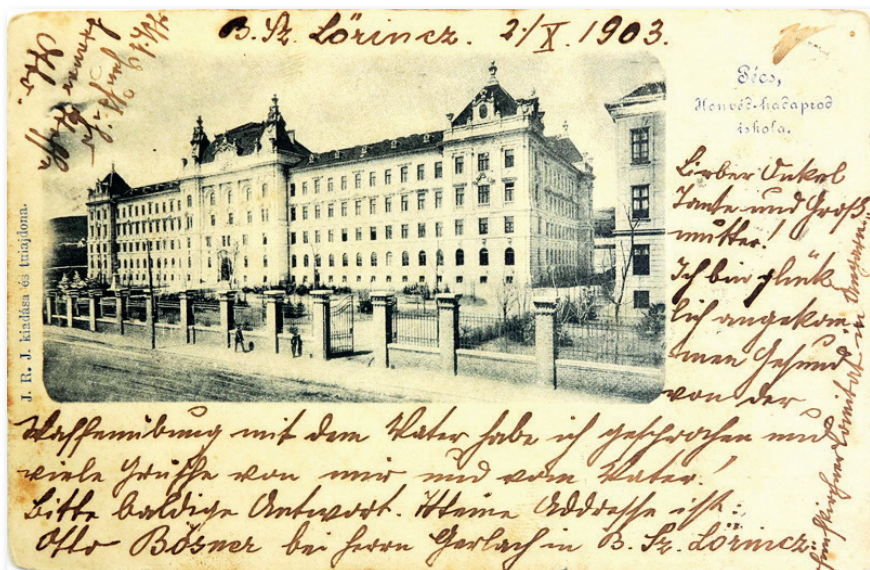 B. Sz. Lőrincz. 2/X. 1903.
Pécs,
Honvéd-hadapród
iskola.
J. R. J. kiadása és tulajdona.
Lieber Onkel
Tante und Groß
mutter!
Ich bin glück
lich angekom
men Gesund
von der
Waffenübung mit dem Vater habe ich gesprochen und
viele Grüsse von mir und vom Vater!
Bitte baldige Antwort. Meine Addresse ist:
Otto Bösner bei Herrn Gerlach in B. Sz. Lörincz:
Fünfkirchner Comitat in Ungarn